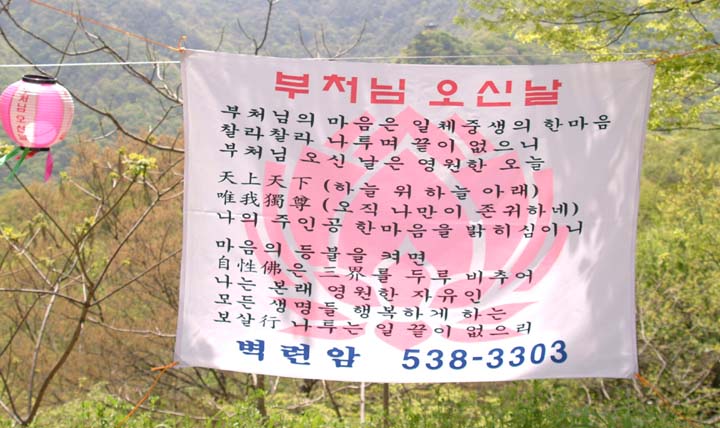 부처님 오신날
부처님의 마음은 일체중생의 한마음
찰라찰라 나투며 끝이 없으니
부처님 오신 날은 영원한 오늘
天上天下 (하늘 위 하늘 아래)
唯我獨尊 (오직 나만이 존귀하네)
나의 주인공 한마음을 밝히심이니
마음의 등불을 켜면
自性佛은 三界를 두루 비추어
나는 본래 영원한 자유인
모든 생명들 행복하게 하는
보살行 나투는 일 끝이 없으리
벽련암 538-3303
처님 오신날